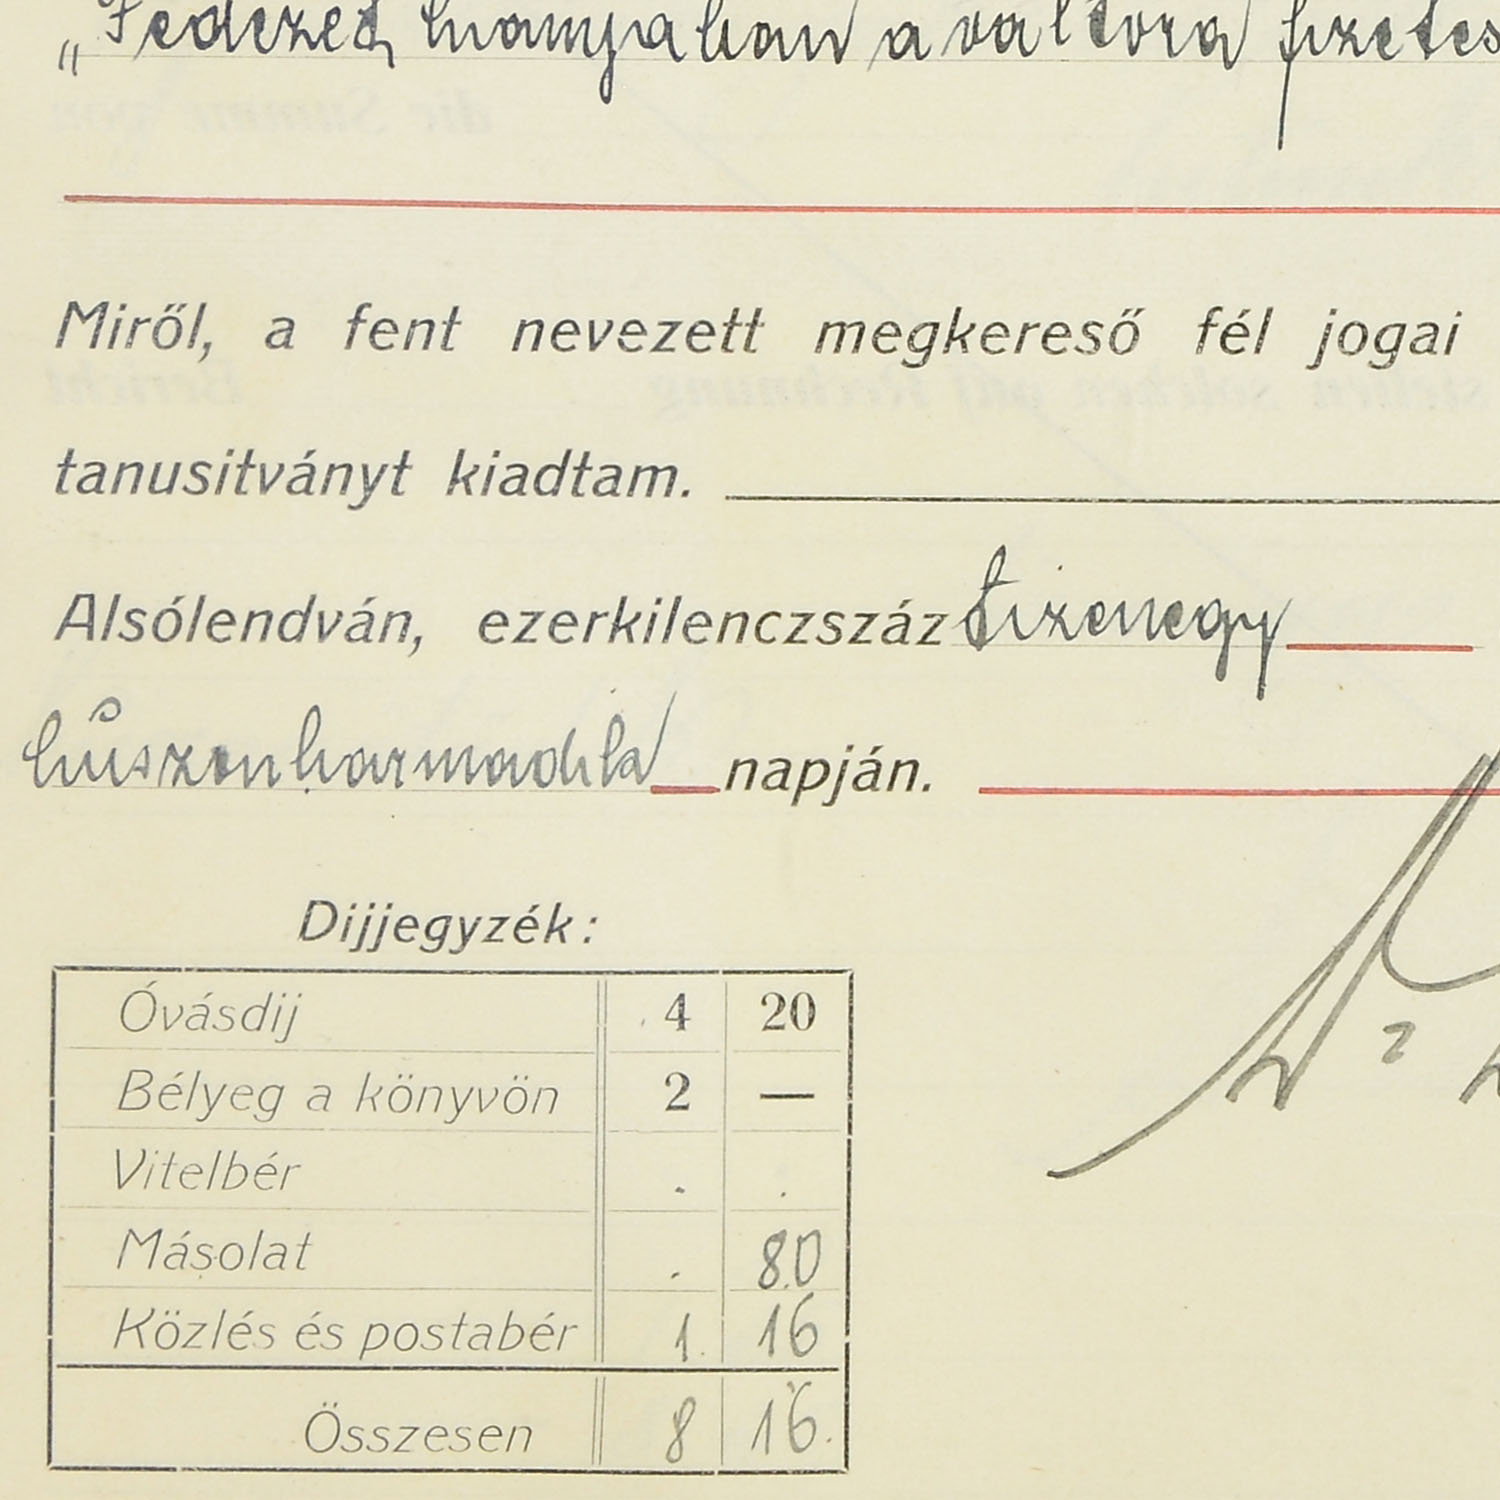 „Fedezet hiányában a váltóra fizetés
Miről, a fent nevezett megkereső fél jogai
tanusitványt kiadtam.
Alsólendván, ezerkilenczszáz tizenegy
húszonharmadik napján.
Dijjegyzék:
Óvásdij 4 20
Bélyeg a könyvön 2 —
Vitelbér . .
Másolat . 80
Közlés és postabér 1 16
Összesen 8 16